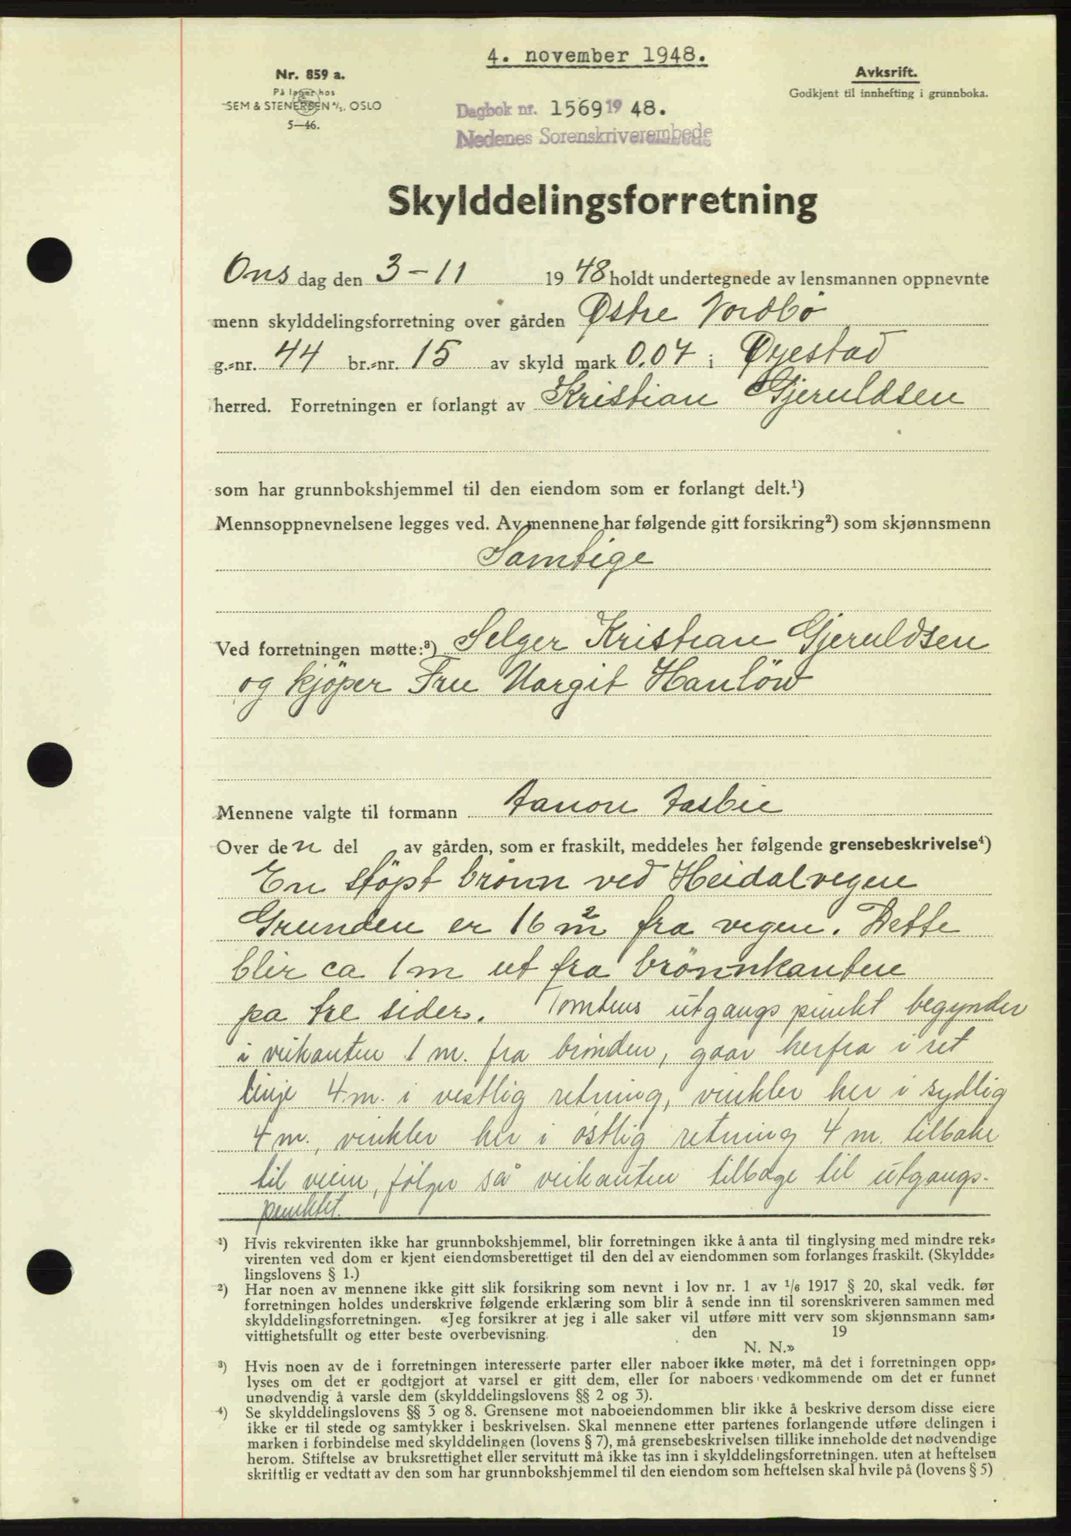 4. november 1948.
Nr. 859 a.
På lager hos
SEM & STENERSEN A/S, OSLO
5—46.
Avkskrift.
Godkjent til innhefting i grunnboka.
Dagbok nr. 1569 19 48.
Nedenes Sorenskriverembede
Skylddelingsforretning
Ons dag den 3-11 19 48 holdt undertegnede av lensmannen oppnevnte
menn skylddelingsforretning over gården Østre Nordbø
g.-nr. 44 br.-nr. 15 av skyld mark 0.07 i Øyestad
herred. Forretningen er forlangt av Kristian Gjeruldsen
som har grunnbokshjemmel til den eiendom som er forlangt delt.¹)
Mennsoppnevnelsene legges ved. Av mennene har følgende gitt forsikring²) som skjønnsmenn
Samtige
Ved forretningen møtte:³) Selger Kristian Gjeruldsen
og kjöper Fru Margit Hanlöw
Mennene valgte til formann
Over den del av gården, som er fraskilt, meddeles her følgende grensebeskrivelse⁴)
En støpt brönn ved Heidalvegen
Grunden er 16 m² fra vegen. Dette
blir ca 1 m ut fra brönnkanten
pa tre sider. Tomtens utgangspunkt begynder
i veikanten 1 m. fra brönden, gaar herfra i ret
linje 4 m. i vestlig retning, vinkler her i sydlig
4 m., vinkler her i östlig retning 4 m. tilbake
til veien, følger så veikanten tilbage til utgangs-
punktet.
¹) Hvis rekvirenten ikke har grunnbokshjemmel, blir forretningen ikke å anta til tinglysing med mindre rek-
virenten ved dom er kjent eiendomsberettiget til den del av eiendommen som forlanges fraskilt. (Skyldde-
lingslovens § 1.)
²) Har noen av mennene ikke gitt slik forsikring som nevnt i lov nr. 1 av 1/6 1917 § 20, skal vedk. før
forretningen holdes underskrive følgende erklæring som blir å sende inn til sorenskriveren sammen med
skylddelingsforretningen. «Jeg forsikrer at jeg i alle saker vil utføre mitt verv som skjønnsmann sam-
vittighetsfullt og etter beste overbevisning. den 19
N. N.»
³) Hvis noen av de i forretningen interesserte parter eller naboer ikke møter, må det i forretningen opp-
lyses om det er godtgjort at varsel er gitt dem, eller for naboers vedkommende om det er funnet
unødvendig å varsle dem (skylddelingslovens §§ 2 og 3).
⁴) Se skylddelingslovens §§ 3 og 8. Grensene mot naboeiendommen blir ikke å beskrive dersom disse eiere
ikke er til stede og samtykker i beskrivelsen. Skal mennene etter partenes forlangende utføre delingen i
marken i forbindelse med skylddelingen (lovens § 7), må grensebeskrivelsen tillike inneholde det nødvendige
herom. Stiftelse av bruksrettighet eller servitutt må ikke tas inn i skylddelingsforretningen, uten at heftelsen
skriftlig er vedtatt av den som har grunnbokshjemmel til den eiendom som heftelsen skal hvile på (lovens § 5)